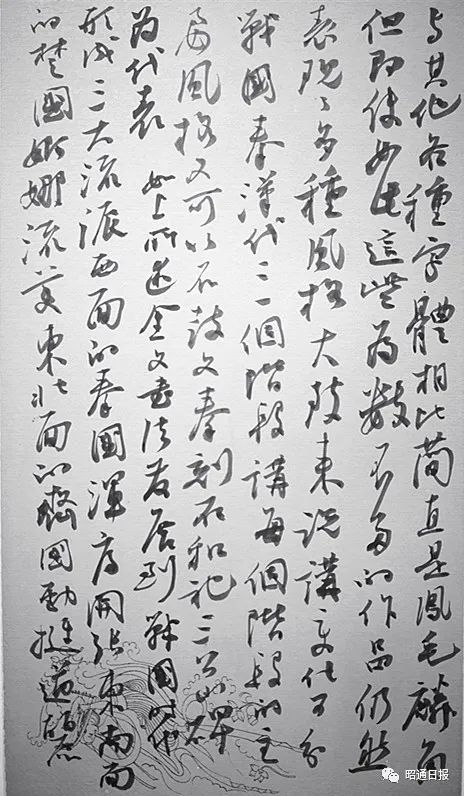 与其他各種字體相比简直是鳳毛麟角
但即使如此這些为數不多的作品仍然
表現了多種風格大致来说講变化可分
戰國秦漢代三個階段講每個階段的主
要風格又可以石鼓文秦刻石和祀三公山碑
为代表 如上所述金文書法發展到戰國时代
形成三大流派西面的秦國渾厚開張東南面
的楚國婀娜流美東北面的齊國勁挺遒
昭通日报